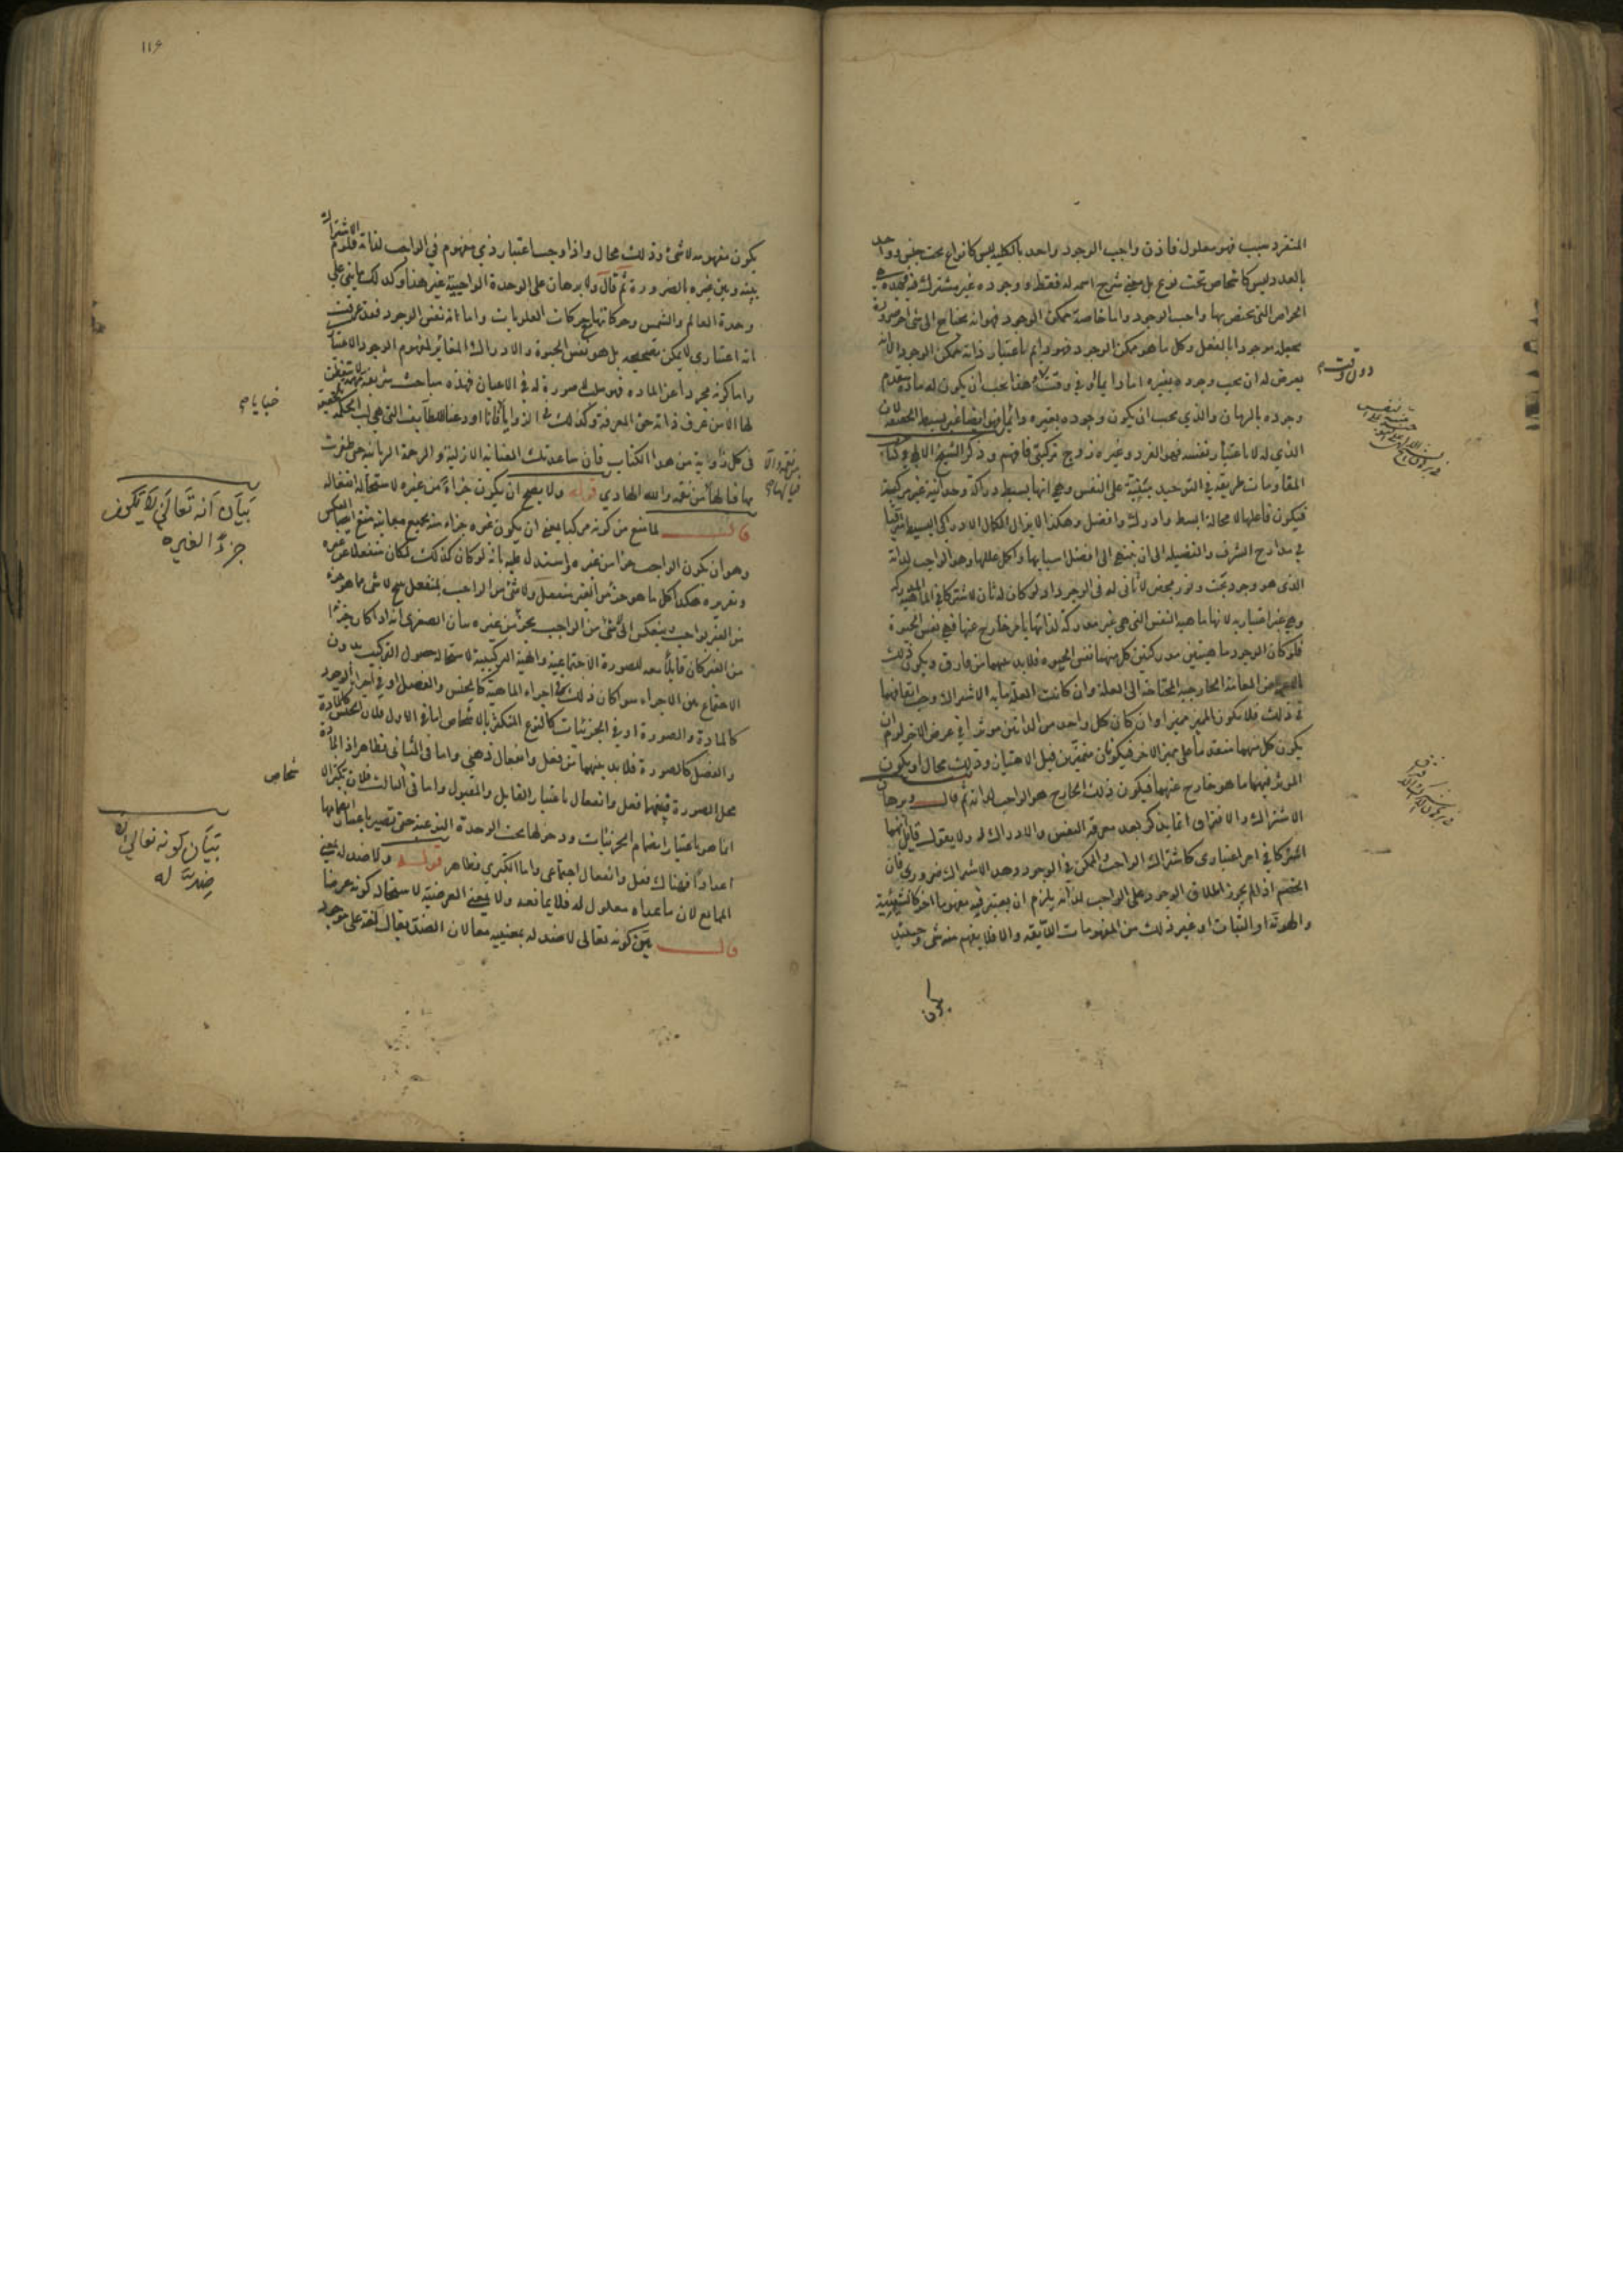 المتفرد بسبب فهو معلول فاذن واجب الوجود واحد بالكلية ليس كانواع تحت جنس وواحد
بالعدد وليس كاشخاص تحت نوع بل معنى شرح اسمه له فقط ووجوده غير مشترك فيه فهذه هي
الخواص التي يختص بها واجب الوجود واما خاصة ممكن الوجود فهو انه يحتاج الى شئ اخر ضرورة
يجعله موجودا بالفعل وكل ما هو ممكن الوجود فهو دايم باعتبار ذاته ممكن الوجود الا انه
يعرض له ان يجب وجوده بغيره اما دايما او في وقت وهذا يجب ان يكون له مادة تتقدم
وجوده بالزمان والذي يجب ان يكون وجوده بغيره دائما فهو ايضا غير بسيط الحقيقة لان
الذي له باعتبار نفسه غير وهو الفرد وغيره زوج تركيبي فافهم وذكر الشيخ الالهي في كتاب
المقاومات طريقة في التوحيد مبنية على النفس وهي انها بسيط دراكة وحدانية غير مركبة
فيكون فاعلها لا محالة ابسط وادرك وافضل وهكذا لا يزال الكمال الادراكي البسيط مترقيا
في مدارج الشرف والفضيلة الى ان ينتهي الى افضل اسبابها واكمل عللها وهو الواجب لذاته
الذي هو وجود بحت ونور محض لا ثاني له في الوجود اذ لو كان له ثان لاشتركا في الماهية
وهي غير اعتبارية لانها ماهية النفس التي هي غير مدركة لذاتها بامر خارج عنها فهي نفس الحيوة
فلو كان الوجود ماهيتين مدركتين كل منهما نفس الحيوة فلا بد بينهما من فارق ويكون ذلك
من المعاني الخارجية المحتاجة الى العلة وان كانت العلة ما به الاشتراك وجب اتفاقهما
في ذلك فلا يكون المميز مميزا وان كان كل واحد من الذاتين موثرا في عرض الاخر لزم ان
يكون كل منهما متقدما على مميز الاخر فيكونان متميزين قبل الامتياز وذلك محال او يكون
الموثر فيهما ما هو خارج عنهما فيكون ذلك الخارج هو الواجب لذاته ثم قال وبرهان
الاشتراك والافتراق انما يذكر بعد معرفة النفس والادراك له ولا يقول قايل انهما
اشتركا في امر اعتباري كاشتراك الواجب والممكن في الوجود وهذا الاشتراك ضروري فان
الخصم اذا لم يجوز اطلاق الوجود على الواجب لذاته يلزم ان يعتبر فيه مفهوما اخر كالشيئية
والهوية او الثبات او غير ذلك من المفهومات اللايقة والا فلا يفهم منه شئ وحينئذ
يكون
١١٦
يكون مفهومه لا شئ وذلك محال واذا وجب اعتبار ذي مفهوم في الواجب لذاته فلزم الاشتراك
بينه وبين غيره بالضرورة ثم قال ولا برهان على الوحدة الواجبية غير هذا وكذلك ما يبنى على
وحدة العالم والشمس وحركاتها وحركات العلويات واما انه نفس الوجود فقد عرفت
انه اعتباري لا يمكن تصحيحه بل هو نفس الحيوة والادراك المغاير لمفهوم الوجود الاعتباري
واما كونه مجردا عن المادة فهو سلب صورة له في الاعيان فهذه مباحث شريفة مهمة لا يتفطن
لها الا من عرف ذاته حق المعرفة وكذلك في الزوايا فانا اودعنا اللطايف التي هي لب الحكمة الحقيقية
في كل زاوية من هذا الكتاب فان ساعدتك العناية الازلية والرحمة الربانية حتى ظفرت
بها فيا لها من نعمة والله الهادي قوله ولا يصح ان يكون جزاء من غيره لاستحالة انفعاله
قال لما منع من كونه مركبا بمعنى ان يكون غيره جزاء منه بجميع معانيه منع ايضا العكس
وهو ان يكون الواجب جزاء من غيره واستدل عليه بانه لو كان كذلك لكان منفعلا عن غيره
وتقريره هكذا كل ما هو جزء من الغير منفعل ولا شئ من الواجب بمنفعل ينتج لا شئ مما هو جزء
من الغير بواجب وينعكس الى لا شئ من الواجب بجزء من غيره بيان الصغرى انه اذا كان جزءا
من الغير كان قابلا معه للصورة الاجتماعية والهيئة التركيبية لاستحالة حصول التركيب بدون
الاجتماع بين الاجزاء سوا كان ذلك في اجزاء الماهية كالجنس والفصل او في اجزاء الوجود
كالمادة والصورة او في الجزئيات كالنوع المتكثر بالاشخاص اما في الاول فلان الجنس كالمادة
والفصل كالصورة فلا بد بينهما من فعل وانفعال ذهني واما في الثاني فظاهر اذ المادة
محل الصورة فبينهما فعل وانفعال باعتبار القابل والمقبول واما في الثالث فلان تكثر الا
انما هو باعتبار انضمام الجزئيات ودخولها تحت الوحدة النوعية حتى تصير باعتبار انضمامها
اعدادا فهناك فعل وانفعال اجتماعي واما الكبرى فظاهر قوله ولا ضد له بمعنى
الممانع لان ما عداه معلول له فلا يمانعه ولا بمعنى العرضية لاستحالة كونه عرضا
قال بين كونه تعالى لا ضد له بمعنييه معا لان الضد يقال لغة على موجود
بيان انه تعالى لا يكون
جزءا لغيره
خباياه
شخاص
بيان كونه تعالى لا
ضد له